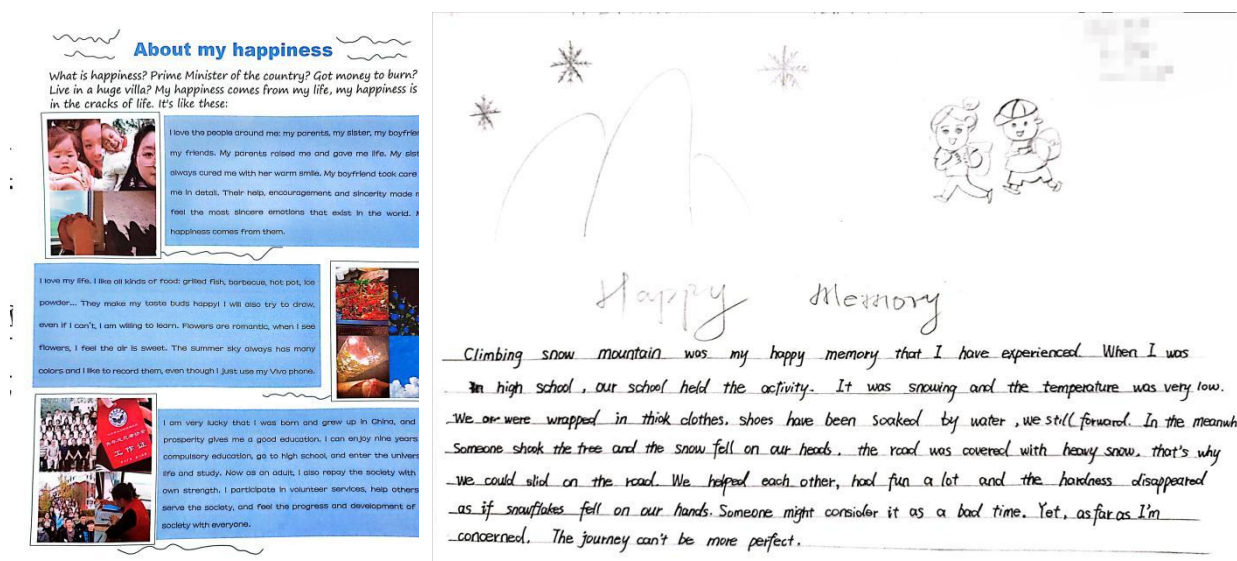 About my happiness
What is happiness? Prime Minister of the country? Got money to burn?
Live in a huge villa? My happiness comes from my life, my happiness is
in the cracks of life. It's like these:
I love the people around me: my parents, my sister, my boyfrien
my friends. My parents raised me and gave me life. My sist
always cured me with her warm smile. My boyfriend took care
me in detail. Their help, encouragement and sincerity made m
feel the most sincere emotions that exist in the world. M
happiness comes from them.
I love my life. I like all kinds of food: grilled fish, barbecue, hot pot, ice
powder... They make my taste buds happy! I will also try to draw,
even if I can't, I am willing to learn. Flowers are romantic, when I see
flowers, I feel the air is sweet. The summer sky always has many
colors and I like to record them, even though I just use my Vivo phone.
工作证
I am very lucky that I was born and grew up in China, and
prosperity gives me a good education. I can enjoy nine years
compulsory education, go to high school, and enter the univers
life and study. Now as an adult, I also repay the society with
own strength. I participate in volunteer services, help others
serve the society, and feel the progress and development of
society with everyone.
Happy Memory
Climbing snow mountain was my happy memory that I have experienced. When I was
in high school, our school held the activity. It was snowing and the temperature was very low.
We were wrapped in thiok clothes. shoes have been soaked by water, we still forward. In the meanwh
Someone shook the tree and the snow fell on our heads. the road was covered with heavy snow. that's why
we could slid on the road. We helped each other, had fun a lot and the hardness disappeared
as if snowflakes fell on our hands. Someone might consider it as a bad time. Yet, as far as I'm
concerned, The journey can't be more perfect.